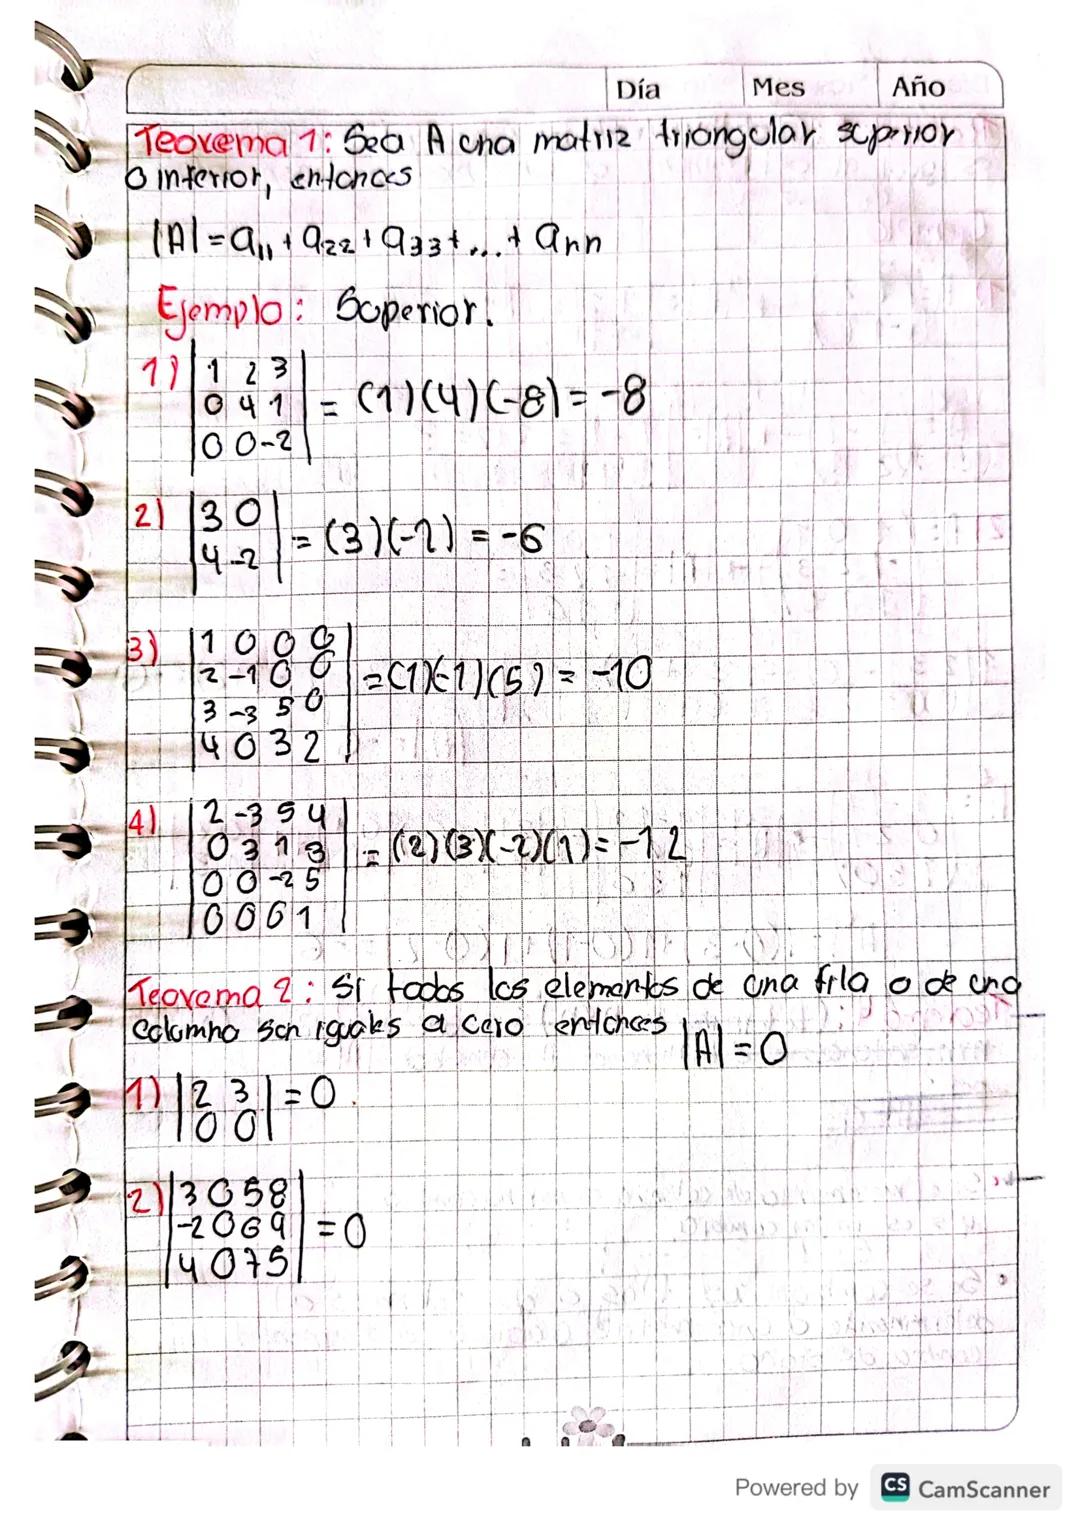 Día Mes Año
Teorema 1: Sea A una matriz triangular superior
o inferior, entonces
|A| = a₁₁ + a₂₂ + a₃₃ + ... + ann
Ejemplo: Superior.
1) | 1 2 3 |
| 0 4 1 | = (1)(4)(-8) = -8
| 0 0 -2 |
2) | 3 0 |
| 4 -2 | = (3)(-2) = -6
3) | 1 0 0 0 |
| 2 -1 0 0 | = (1)(-1)(5) = -10
| 3 -3 5 0 |
| 4 0 3 2 |
4) | 2 -3 5 4 |
| 0 3 1 3 | = (2)(3)(-2)(1) = -12
| 0 0 -2 5 |
| 0 0 0 1 |
Teorema 2: Si todos los elementos de una fila o de una
columna son iguales a cero entonces |A| = 0
1) | 2 3 | = 0.
| 0 0 |
2) | 3 0 5 8 |
| -2 0 6 9 | = 0
| 4 0 7 5 |
Powered by CS CamScanner